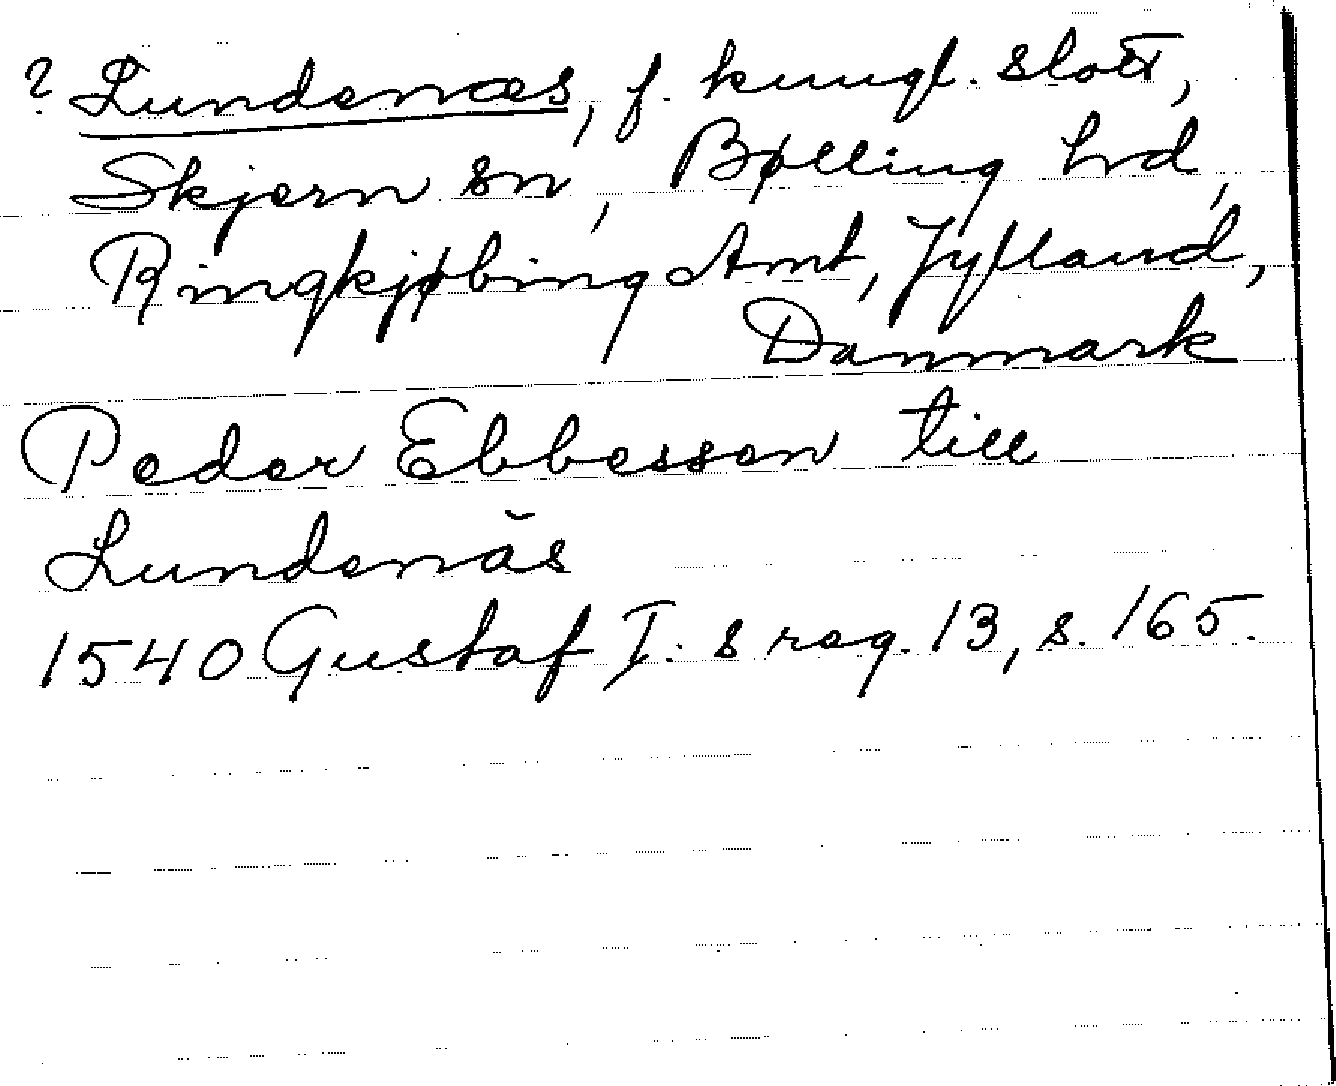 ? Lundenæs, f. kungl. slott,
Skjern sn, Bølling hrd,
Ringkjøbing Amt, Jylland,
Danmark
Peder Ebbessen till
Lundenäs
1540 Gustaf I. s reg. 13, s. 165.